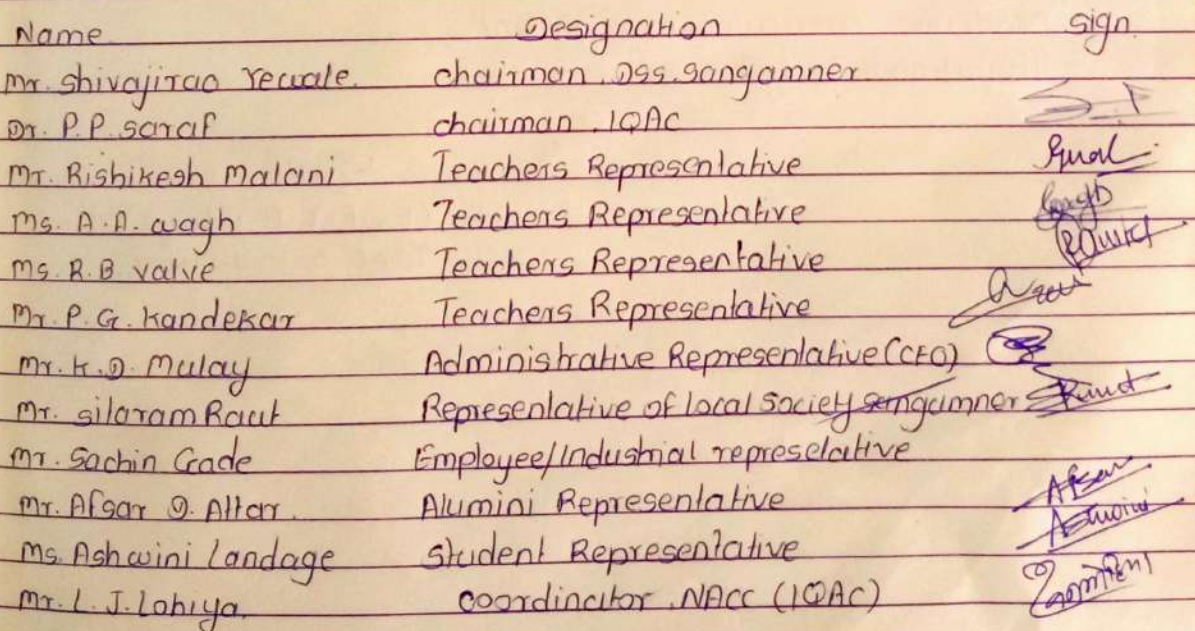 Name Designation Sign
Mr. Shivajirao Yewale. Chairman. DSS. Sangamner
Dr. P.P. Saraf Chairman. IQAC
Mr. Rishikesh Malani Teachers Representative
Ms. A.A. Wagh Teachers Representative
Ms. R.B Valvie Teachers Representative
Mr. P.G. Kandekar Teachers Representative
Mr. K.D. Mulay Administrative Representative (CEO)
Mr. Sitaram Raut Representative of local Society Sangamner
Mr. Sachin Gade Employee/Industrial represelative
Mr. Afsar D. Attar. Alumini Representative Afsar
Ms. Ashwini Landage Student Representative Ashwini
Mr. L.J. Lohiya. Coordinator. NACC (IQAC)